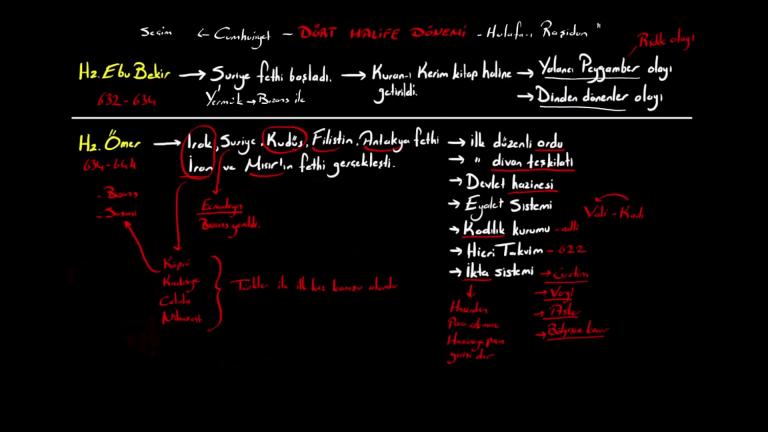 Seçim ← Cumhuriyet - DÖRT HALİFE DÖNEMİ - Hulefa-ı Raşidun "
Ridde olayı
Hz. Ebu Bekir → Suriye fethi başladı. → Kuran-ı Kerim kitap haline getirildi. → Yalancı Peygamber olayı
632 - 634
Yermük → Bizans ile
→ Dinden dönenler olayı
Hz. Ömer → Irak, Suriye, Kudüs, Filistin, Antakya fethi
634 - 644
İran ve Mısır'ın fethi gerçekleşti.
- Bizans
- Sasani
Ecnadeyn
Bizans yenildi.
Köprü
Kadisiye
Celula
Nihavent
Türkler ile ilk kez komşu olundu
→ ilk düzenli ordu
→ " divan teşkilatı
→ Devlet hazinesi
→ Eyalet Sistemi
Vali - Kadı
→ Kadılık kurumu - adli
→ Hicri Takvim - 622
→ İkta sistemi → Üretim
→ Vergi
→ Asker
→ Bölgesine
Hazineden
Para çıkmaz
Hazineye para
girişi olur